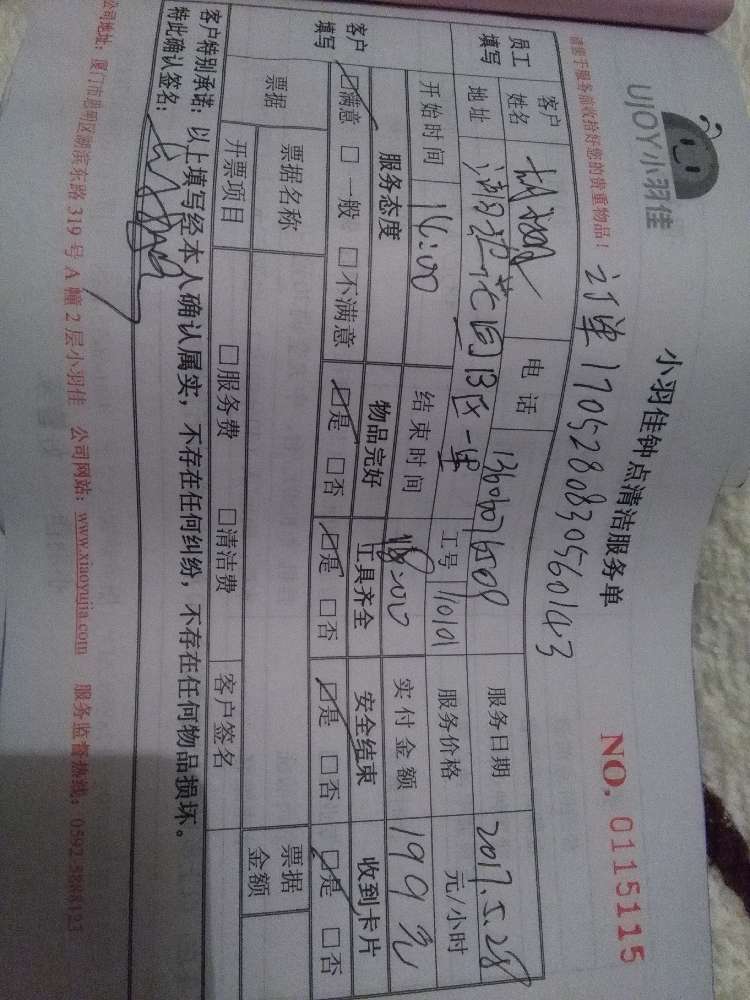 UJOY小羽佳
小羽佳钟点清洁服务单
NO. 0115115
请您于服务前收拾好您的贵重物品！
订单1705280830560143
员工填写
客户姓名
电话
服务日期 2017.5.28
地址 13区一里
工号 110101
服务价格 元/小时
开始时间 14:00
结束时间 18:00
实付金额 199元
客户填写
服务态度 物品完好 工具齐全 安全结束 收到卡片
☑满意 □一般 □不满意 ☑是 □否 ☑是 □否 ☑是 □否 ☑是 □否
票据
票据名称
票据金额
开票项目 □服务费 □清洁费 客户签名
客户特别承诺：以上填写经本人确认属实，不存在任何纠纷，不存在任何物品损坏。
特此确认签名：
公司地址：厦门市思明区湖滨东路319号A幢2层小羽佳 公司网站：www.xiaoyujia.com 服务监督热线：0592-5888123